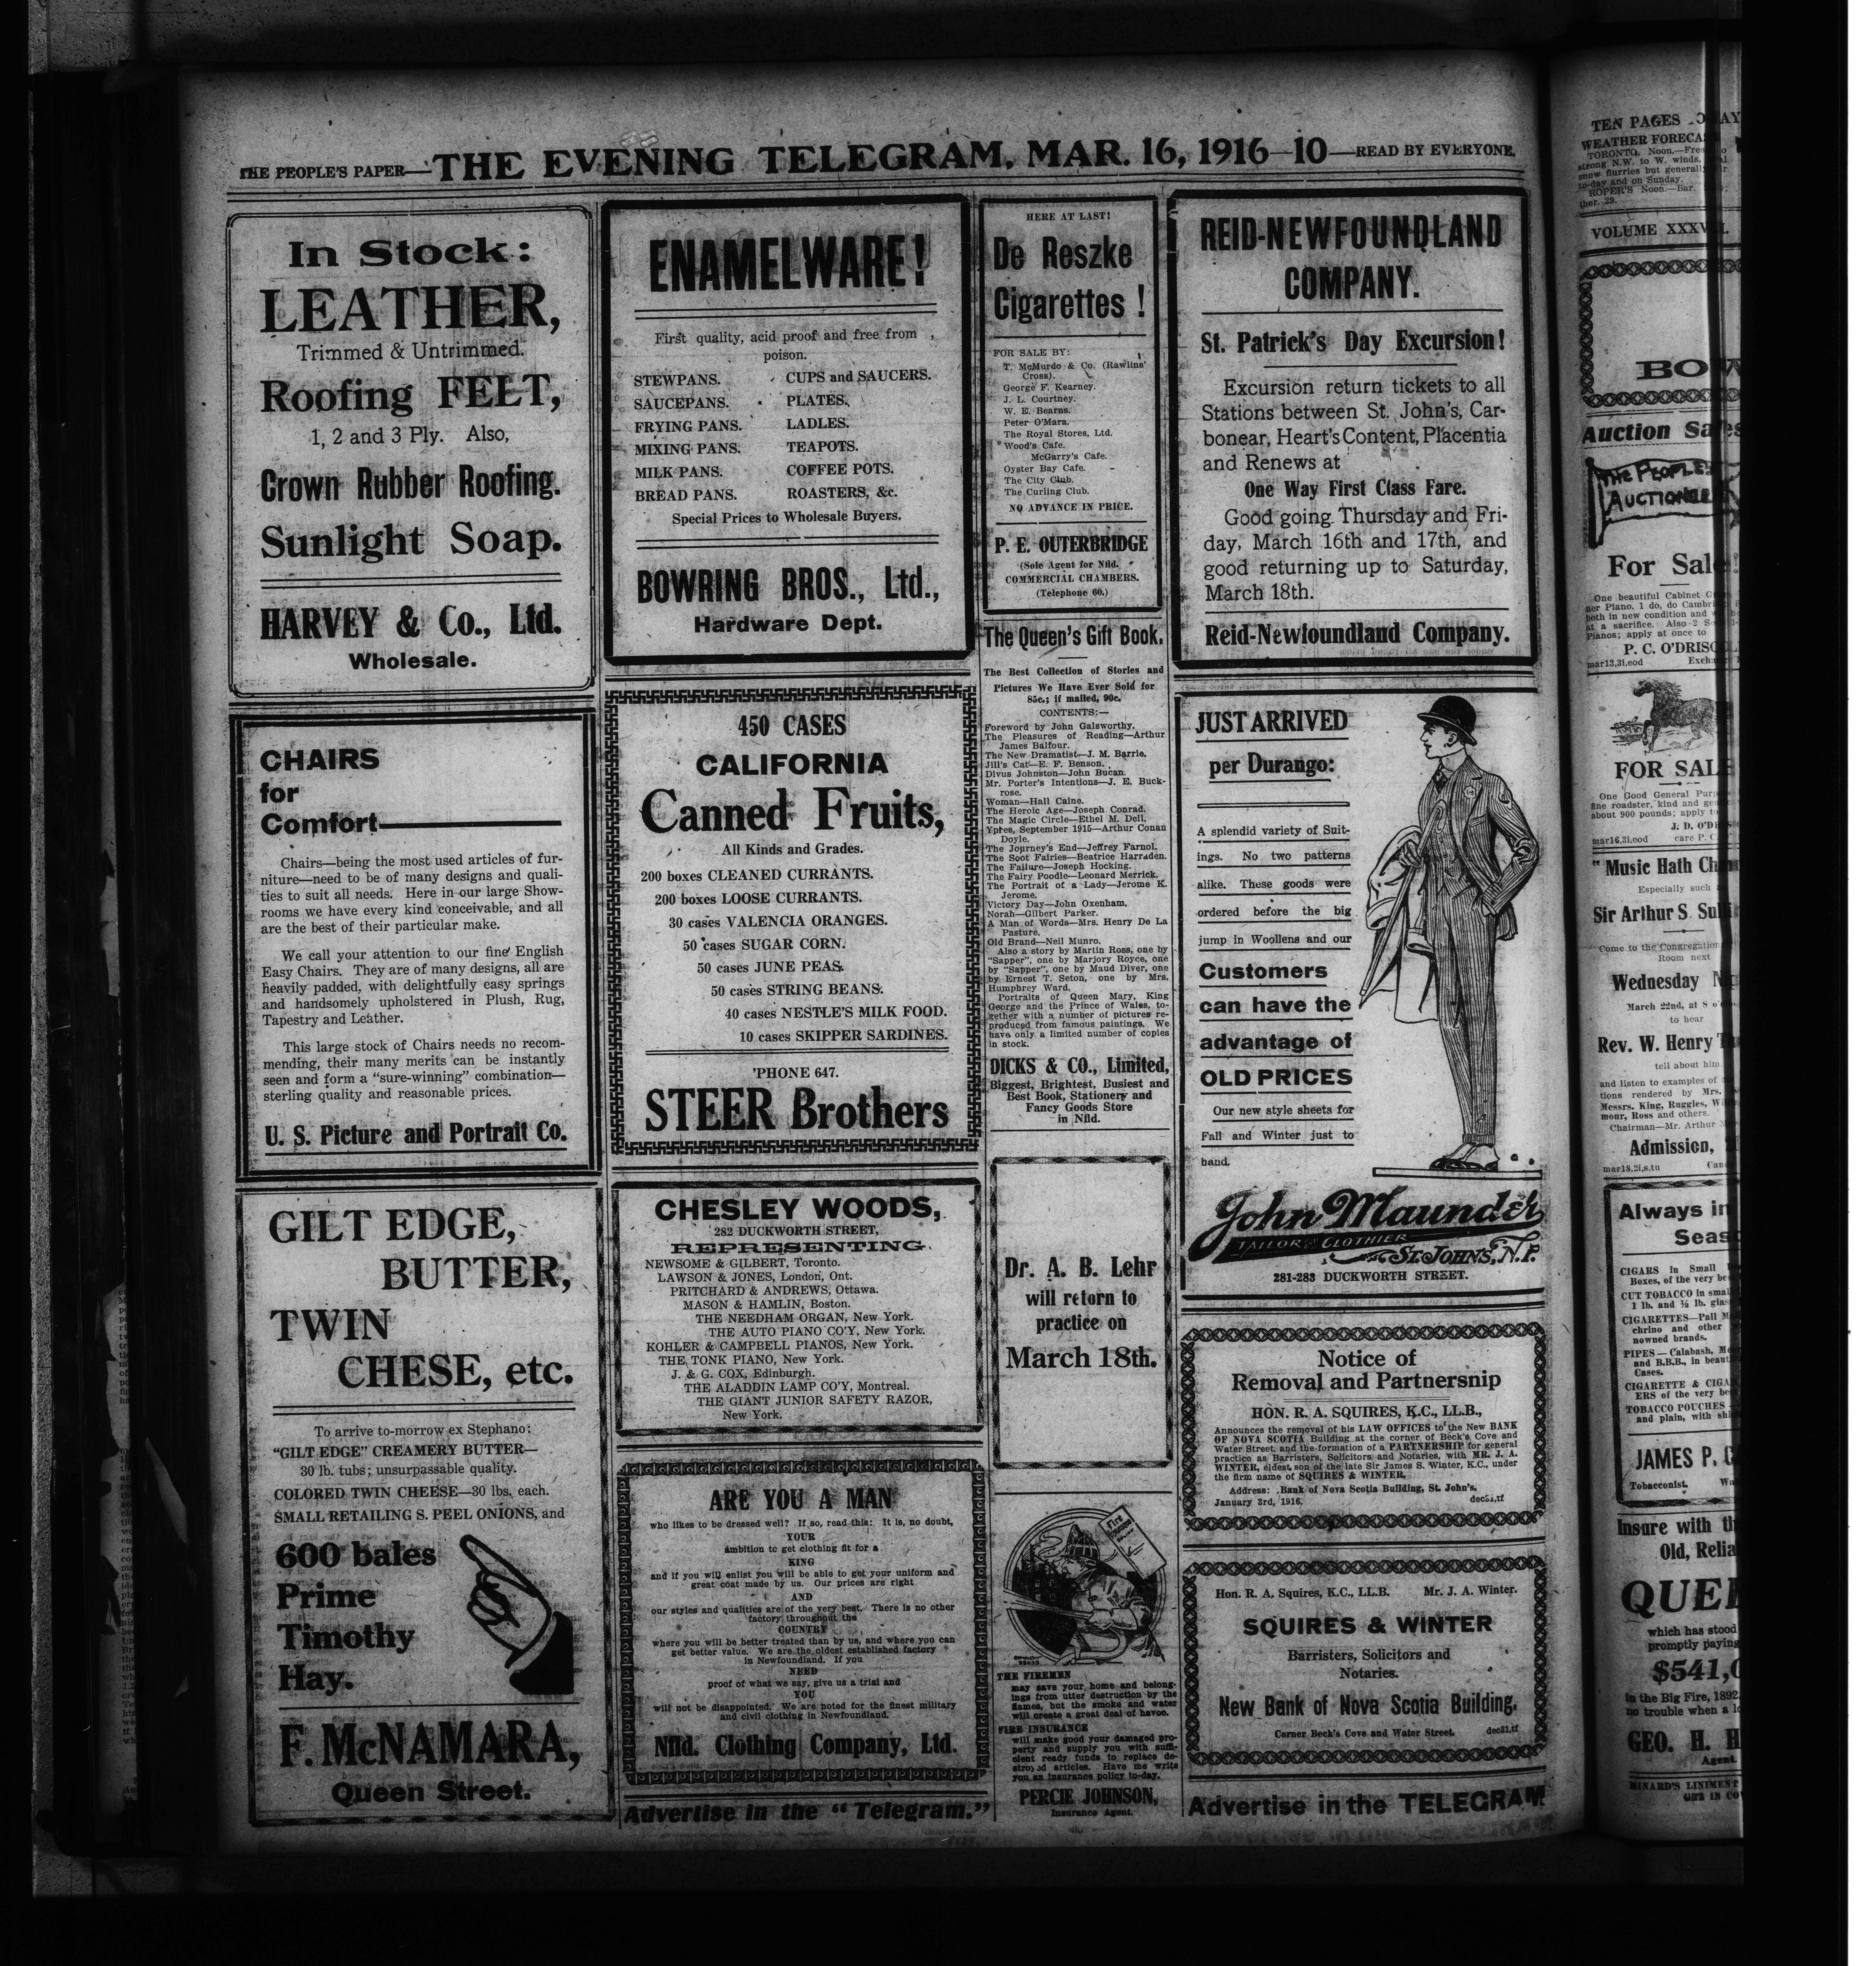 THE PEOPLE'S PAPER—THE EVENING TELEGRAM, MAR. 16, 1916—10—READ BY EVERYONE.
In Stock:
LEATHER,
Trimmed & Untrimmed.
Roofing FELT,
1, 2 and 3 Ply. Also,
Crown Rubber Roofing.
Sunlight Soap.
HARVEY & Co., Ltd.
Wholesale.
CHAIRS
for
Comfort—
Chairs—being the most used articles of fur-
niture—need to be of many designs and quali-
ties to suit all needs. Here in our large Show-
rooms we have every kind conceivable, and all
are the best of their particular make.
We call your attention to our fine English
Easy Chairs. They are of many designs, all are
heavily padded, with delightfully easy springs
and handsomely upholstered in Plush, Rug,
Tapestry and Leather.
This large stock of Chairs needs no recom-
mending, their many merits can be instantly
seen and form a "sure-winning" combination—
sterling quality and reasonable prices.
U. S. Picture and Portrait Co.
GILT EDGE,
BUTTER,
TWIN
CHESE, etc.
To arrive to-morrow ex Stephano:
"GILT EDGE" CREAMERY BUTTER—
30 lb. tubs; unsurpassable quality.
COLORED TWIN CHEESE—30 lbs. each.
SMALL RETAILING S. PEEL ONIONS, and
600 bales
Prime
Timothy
Hay.
F. McNAMARA,
Queen Street.
ENAMELWARE!
First quality, acid proof and free from
poison.
STEWPANS. CUPS and SAUCERS.
SAUCEPANS. PLATES.
FRYING PANS. LADLES.
MIXING PANS. TEAPOTS.
MILK PANS. COFFEE POTS.
BREAD PANS. ROASTERS, &c.
Special Prices to Wholesale Buyers.
BOWRING BROS., Ltd.,
Hardware Dept.
450 CASES
CALIFORNIA
Canned Fruits,
All Kinds and Grades.
200 boxes CLEANED CURRANTS.
200 boxes LOOSE CURRANTS.
30 cases VALENCIA ORANGES.
50 cases SUGAR CORN.
50 cases JUNE PEAS.
50 cases STRING BEANS.
40 cases NESTLE'S MILK FOOD.
10 cases SKIPPER SARDINES.
'PHONE 647.
STEER Brothers
CHESLEY WOODS,
282 DUCKWORTH STREET,
REPRESENTING
NEWSOME & GILBERT, Toronto.
LAWSON & JONES, London, Ont.
PRITCHARD & ANDREWS, Ottawa.
MASON & HAMLIN, Boston.
THE NEEDHAM ORGAN, New York.
THE AUTO PIANO CO'Y, New York.
KOHLER & CAMPBELL PIANOS, New York.
THE TONK PIANO, New York.
J. & G. COX, Edinburgh.
THE ALADDIN LAMP CO'Y, Montreal.
THE GIANT JUNIOR SAFETY RAZOR,
New York.
ARE YOU A MAN
who likes to be dressed well? If so, read this: It is, no doubt,
YOUR
ambition to get clothing fit for a
KING
and if you will enlist you will be able to get your uniform and
great coat made by us. Our prices are right
AND
our styles and qualities are of the very best. There is no other
factory throughout the
COUNTRY
where you will be better treated than by us, and where you can
get better value. We are the oldest established factory
in Newfoundland. If you
NEED
proof of what we say, give us a trial and
YOU
will not be disappointed. We are noted for the finest military
and civil clothing in Newfoundland.
Nfld. Clothing Company, Ltd.
Advertise in the "Telegram."
HERE AT LAST!
De Reszke
Cigarettes!
FOR SALE BY:
T. McMurdo & Co. (Rawlins'
Cross).
George F. Kearney.
J. L. Courtney.
W. E. Bearns.
Peter O'Mara.
The Royal Stores, Ltd.
Wood's Cafe.
McGarry's Cafe.
Oyster Bay Cafe.
The City Club.
The Curling Club.
NO ADVANCE IN PRICE.
P. E. OUTERBRIDGE
(Sole Agent for Nfld.
COMMERCIAL CHAMBERS.
(Telephone 60.)
The Queen's Gift Book.
The Best Collection of Stories and
Pictures We Have Ever Sold for
85c.; if mailed, 90c.
CONTENTS:—
Foreword by John Galsworthy.
The Pleasures of Reading—Arthur
James Balfour.
The New Dramatist—J. M. Barrie.
Jill's Cat—E. F. Benson.
Divus Johnston—John Bucan.
Mr. Porter's Intentions—J. E. Buck-
rose.
Woman—Hall Caine.
The Heroic Age—Joseph Conrad.
The Magic Circle—Ethel M. Dell.
Ypres, September 1915—Arthur Conan
Doyle.
The Journey's End—Jeffrey Farnol.
The Soot Fairies—Beatrice Harraden.
The Failure—Joseph Hocking.
The Fairy Poodle—Leonard Merrick.
The Portrait of a Lady—Jerome K.
Jerome.
Victory Day—John Oxenham.
Norah—Gilbert Parker.
A Man of Words—Mrs. Henry De La
Pasture.
Old Brand—Neil Munro.
Also a story by Martin Ross, one by
"Sapper", one by Marjory Royce, one
by "Sapper", one by Maud Diver, one
by Ernest T. Seton, one by Mrs.
Humphrey Ward.
Portraits of Queen Mary, King
George and the Prince of Wales, to-
gether with a number of pictures re-
produced from famous paintings. We
have only a limited number of copies
in stock.
DICKS & CO., Limited,
Biggest, Brightest, Busiest and
Best Book, Stationery and
Fancy Goods Store
in Nfld.
Dr. A. B. Lehr
will return to
practice on
March 18th.
Fire
THE FIREMEN
may save your home and belong-
ings from utter destruction by the
flames, but the smoke and water
will create a great deal of havoc.
FIRE INSURANCE
will make good your damaged pro-
perty and supply you with suffi-
cient ready funds to replace de-
stroyed articles. Have me write
you an insurance policy to-day.
PERCIE JOHNSON,
Insurance Agent.
REID-NEWFOUNDLAND
COMPANY.
St. Patrick's Day Excursion!
Excursion return tickets to all
Stations between St. John's, Car-
bonear, Heart's Content, Placentia
and Renews at
One Way First Class Fare.
Good going Thursday and Fri-
day, March 16th and 17th, and
good returning up to Saturday,
March 18th.
Reid-Newfoundland Company.
JUST ARRIVED
per Durango:
A splendid variety of Suit-
ings. No two patterns
alike. These goods were
ordered before the big
jump in Woollens and our
Customers
can have the
advantage of
OLD PRICES
Our new style sheets for
Fall and Winter just to
hand.
John Maunder
TAILOR & CLOTHIER
ST. JOHN'S, N.F.
281-283 DUCKWORTH STREET.
Notice of
Removal and Partnersnip
HON. R. A. SQUIRES, K.C., LL.B.,
Announces the removal of his LAW OFFICES to the New BANK
OF NOVA SCOTIA Building at the corner of Beck's Cove and
Water Street and the formation of a PARTNERSHIP for general
practice as Barristers, Solicitors and Notaries, with MR. J. A.
WINTER, eldest son of the late Sir James S. Winter, K.C., under
the firm name of SQUIRES & WINTER.
Address: Bank of Nova Scotia Building, St. John's.
January 3rd, 1916. dec31,tf
Hon. R. A. Squires, K.C., LL.B. Mr. J. A. Winter.
SQUIRES & WINTER
Barristers, Solicitors and
Notaries.
New Bank of Nova Scotia Building.
Corner Beck's Cove and Water Street. dec31,tf
Advertise in the TELEGRAM
TEN PAGES
WEATHER FORECA
TORONTO, Noon.—
strong N.W. to W. winds,
snow flurries but general
to-day and on Sunday.
ROPER'S Noon.—Bar.
ther. 29.
VOLUME
BOW
Auction Sales
THE PEOPLE'S
AUCTIONEER
For Sale!
One beautiful Cabinet
ner Piano, 1 do, do
both in new condition and
at a sacrifice. Also 2
Pianos; apply at once to
P. C. O'DRISCOLL
mar13,3i,eod
FOR SALE
One Good General
fine roadster, kind and
about 900 pounds; apply
J. D. O'D
mar16,3i,eod care P. C.
"Music Hath Ch
Especially such
Sir Arthur S. Sulli
Come to the Congregation
Room next
Wednesday
March 22nd, at 8
to hear
Rev. W. Henry
tell about him
and listen to examples of
tions rendered by Mrs.
Messrs. King, Ruggles,
mour, Ross and others.
Chairman—Mr. Arthur
Admission,
mar18,2i,s,tu
Always in
Seas
CIGARS in Small
Boxes, of the very be
CUT TOBACCO in smal
1 lb. and ½ lb. glas
CIGARETTES—Pall M
chrino and other
nowned brands.
PIPES—Calabash,
and B.B.B., in beaut
Cases.
CIGARETTE & CIGA
ERS of the very be
TOBACCO POUCHES
and plain, with
JAMES P. C
Tobacconist.
Insure with th
Old, Relia
QUEE
which has stood
promptly paying
$541,0
in the Big Fire, 1892
no trouble when a
GEO. H. H
Agent.
MINARD'S LINIMENT
GET IN CO